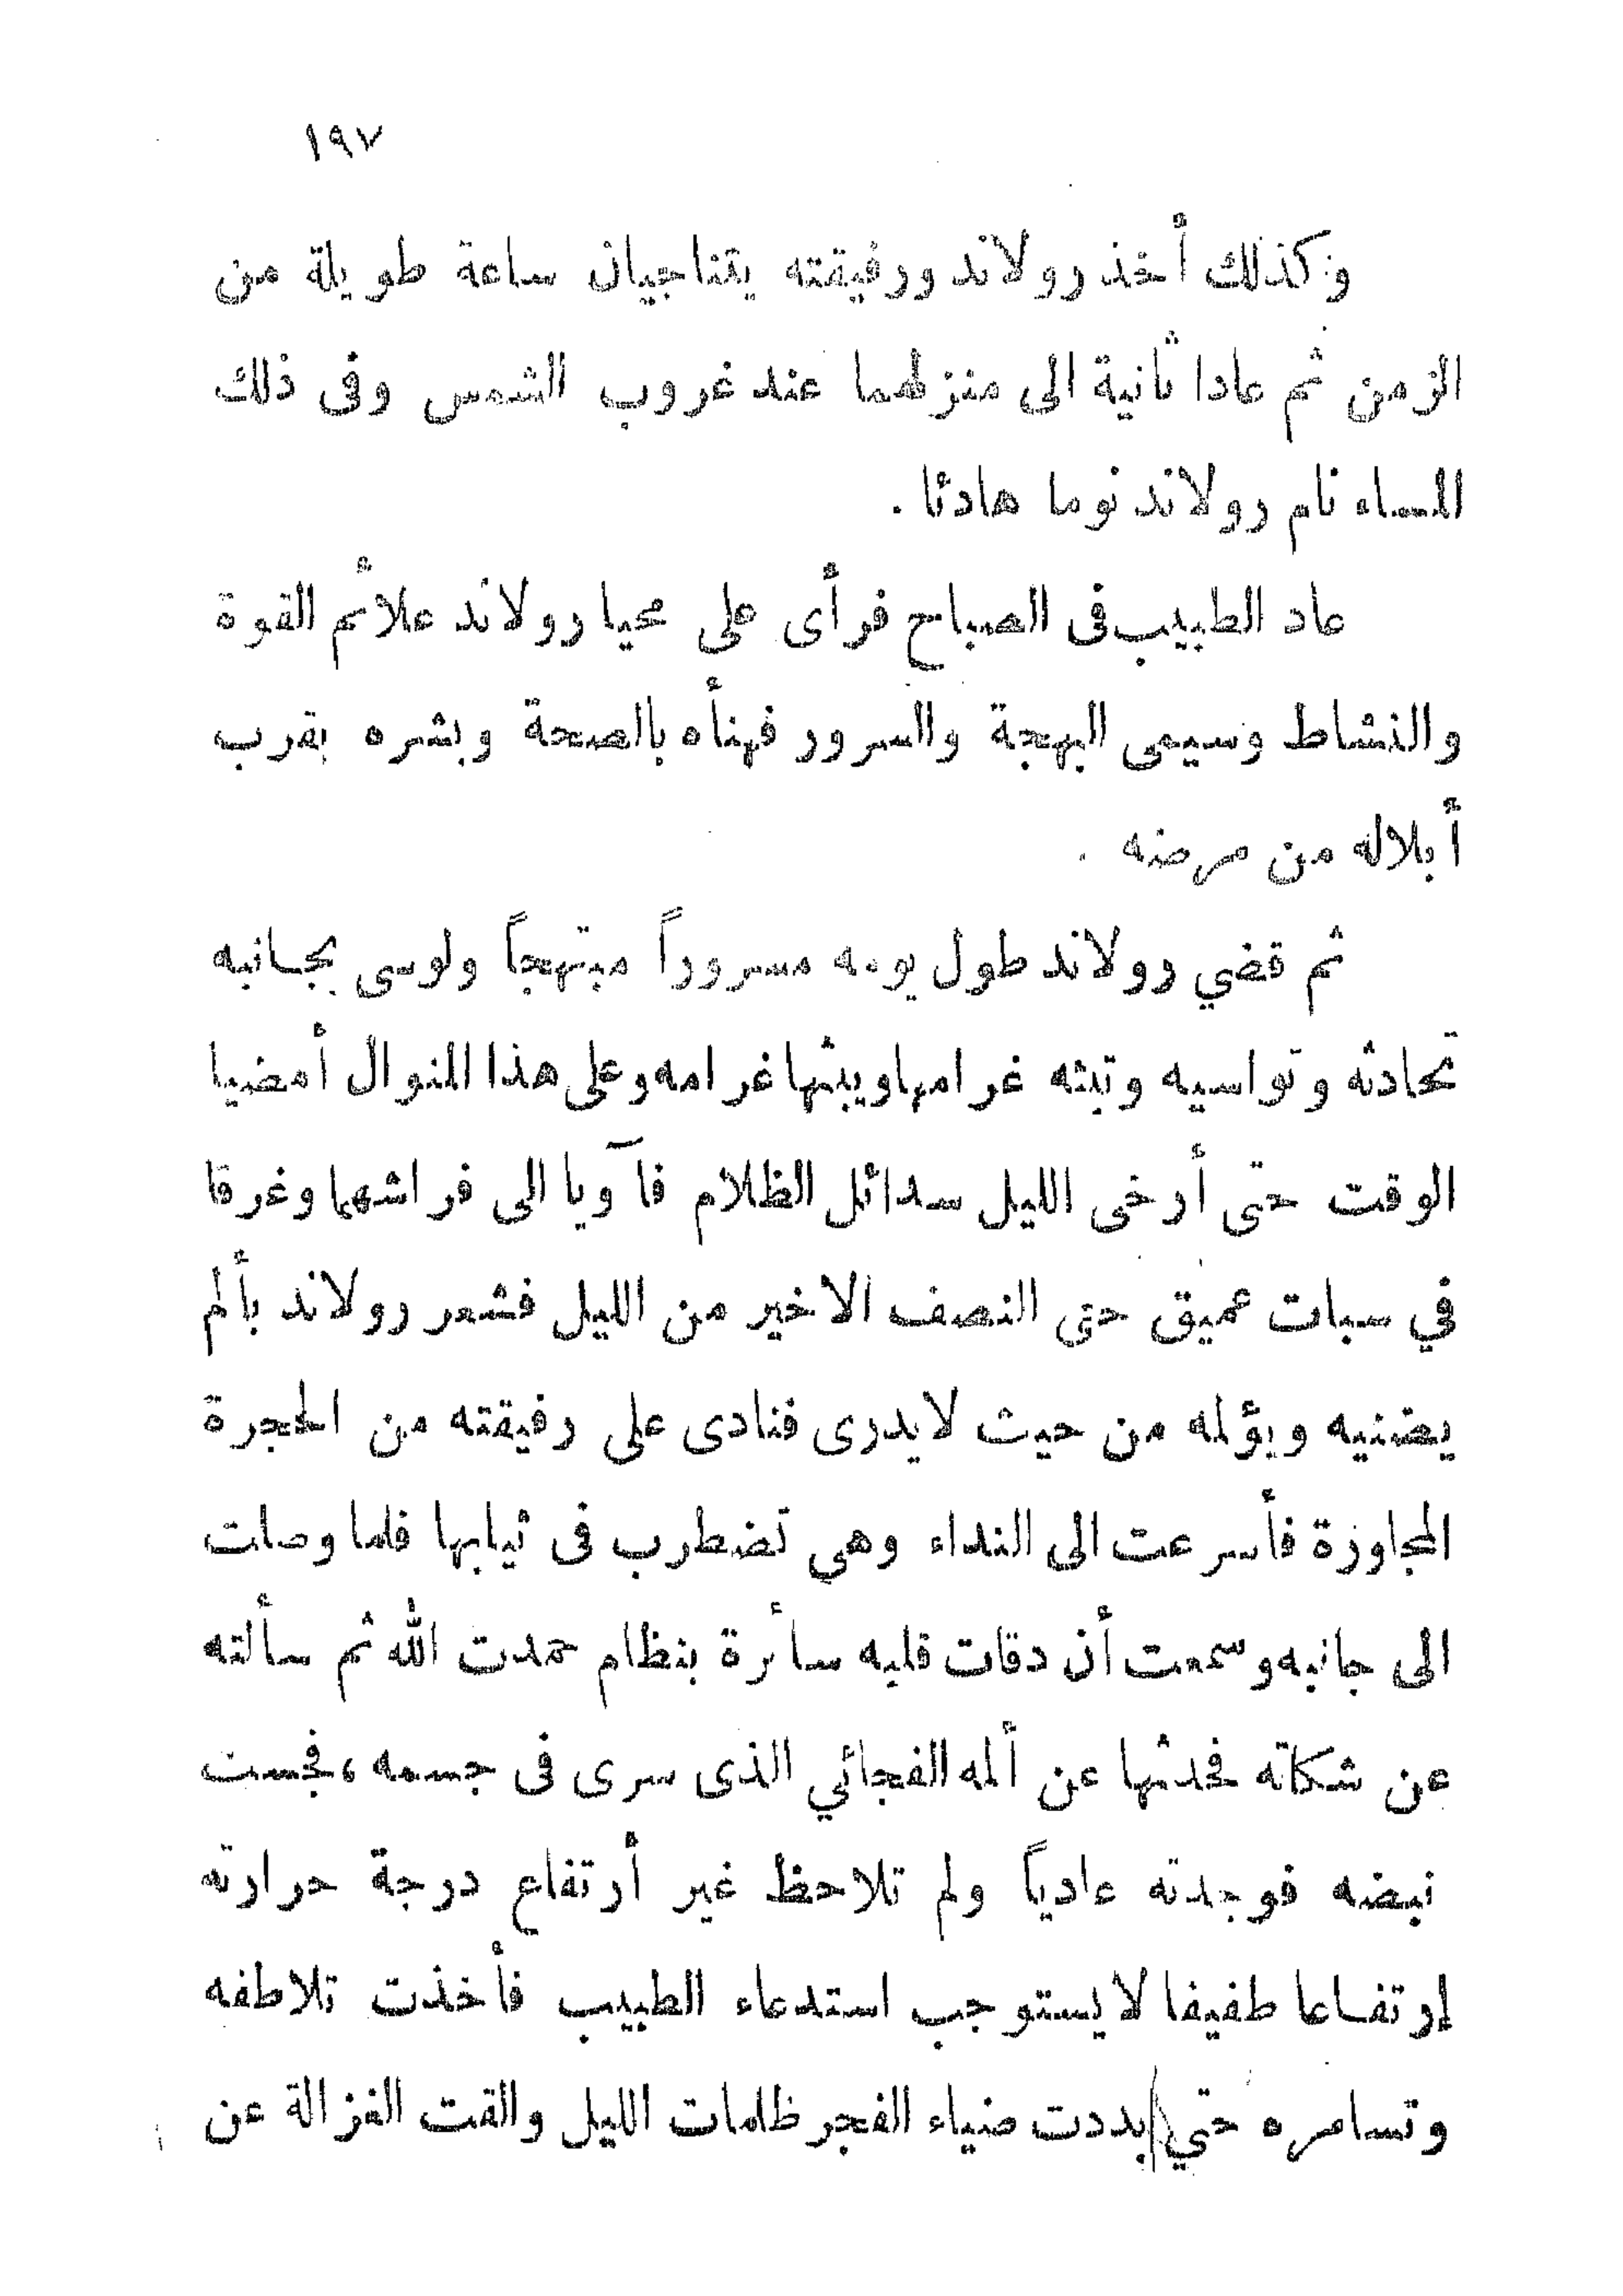 ١٩٧
وكذلك أخذ رولاند ورفيقته يتناجيان ساعة طويلة من
الزمن ثم عادا ثانية الى منزلهما عند غروب الشمس وفى ذلك
المساء نام رولاند نوما هادئا .
عاد الطبيب فى الصباح فرأى على محيا رولاند علائم القوة
والنشاط وسيمى البهجة والسرور فهنأه بالصحة وبشره بقرب
أبلاله من مرضه .
ثم قضي رولاند طول يومه مسروراً مبتهجاً ولوسى بجانبه
تحادثه وتواسيه وتبثه غرامها ويبثها غرامه وعلى هذا المنوال أمضيا
الوقت حتى أرخى الليل سدائل الظلام فآويا الى فراشهما وغرقا
في سبات عميق حتى النصف الاخير من الليل فشعر رولاند بألم
يضنيه ويؤلمه من حيث لايدرى فنادى على رفيقته من الحجرة
المجاوزة فأسرعت الى النداء وهى تضطرب فى ثيابها فلما وصلت
الى جانبه وسمعت أن دقات قلبه سأرة بنظام حمدت الله ثم سألته
عن شكاته فحدثها عن ألمه الفجائي الذى سرى فى جسمه ، فجست
نبضه فوجدته عادياً ولم تلاحظ غير أرتفاع درجة حرارته
إرتفاعا طفيفا لايستوجب استدعاء الطبيب فأخذت تلاطفه
وتسامره حتي بددت ضياء الفجر ظلمات الليل والقت الغزالة عن